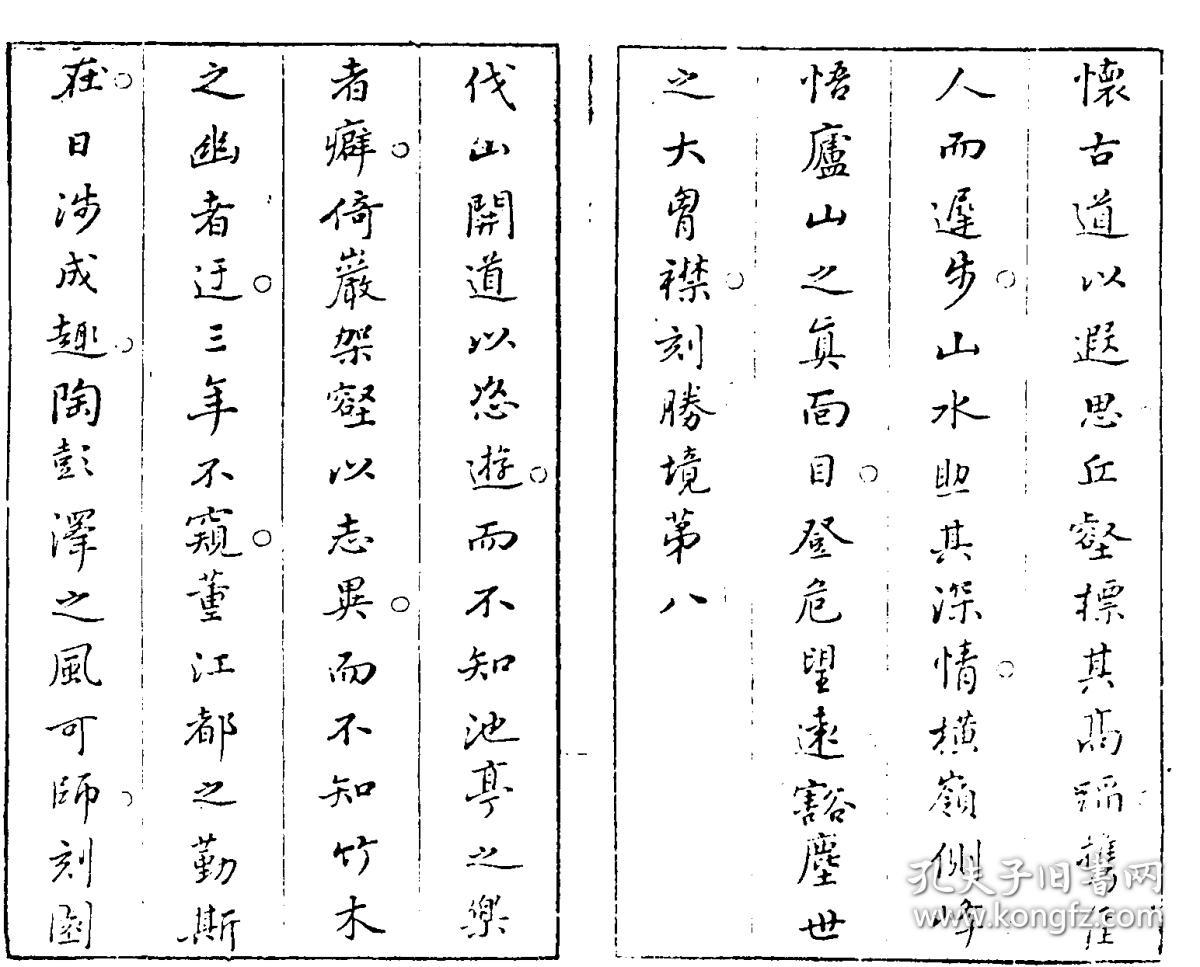 懷古道以遐思丘壑標其高蹈攜佳
人而遲步山水照其深情橫嶺側峰
悟廬山之真面目登危望遠豁塵世
之大胷襟刻勝境第八
伐山開道以恣遊而不知池亭之樂
者癖倚巖架壑以志異而不知竹木
之幽者迂三年不窺董江都之勤斯
在日涉成趣陶彭澤之風可師刻園
孔夫子旧书网
www.kongfz.com